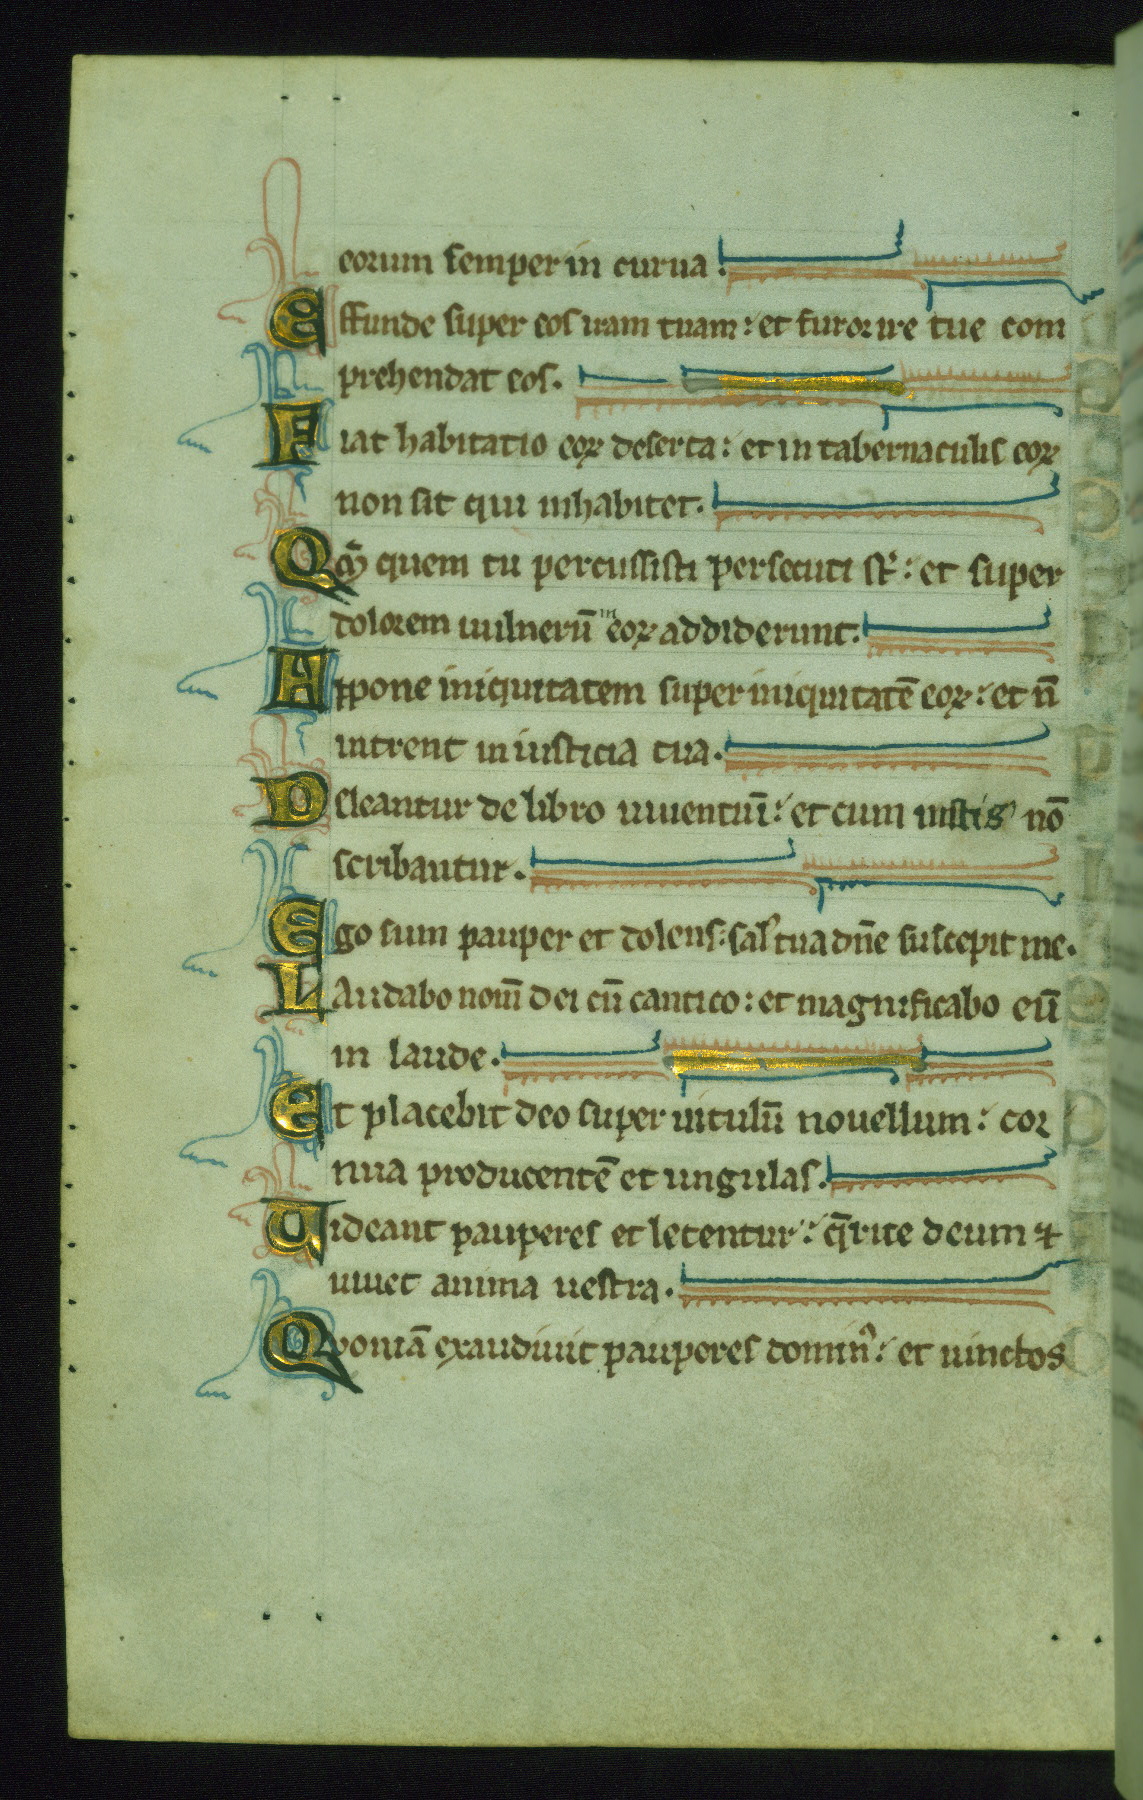 eorum semper in curua:
Effunde super eos iram tuam: et furor ire tue com
prehendat eos.
Fiat habitatio eoꝝ deserta: et in tabernaculis eoꝝ
non sit qui inhabitet.
Qm̄ quem tu percussisti persecuti st̄: et super
dolorem uulnerū meoꝝ addiderunt.
Appone iniquitatem super iniquitatē eoꝝ: et n̄
intrent in iusticia tua.
Deleantur de libro uiuentiū: et cum iustis nō
scribantur.
Ego sum pauper et dolens: sal' tua dn̄e suscepit me.
Laudabo nom̄ dei cū cantico: et magnificabo eū
in laude.
Et placebit deo super uitulū nouellum: cor
nua producentē et ungulas.
Uideant pauperes et letentur: q̄rite deum ⁊
uiuet anima uestra.
Quoniā exaudiuit pauperes domin᾽: et uinctos